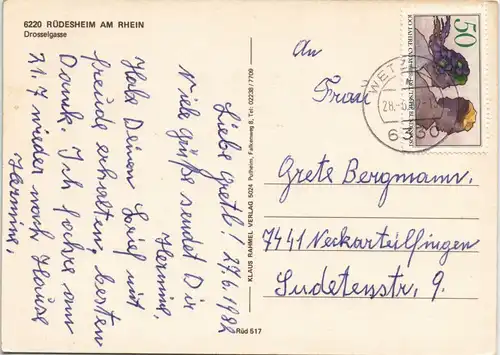 6220 RÜDESHEIM AM RHEIN
Drosselgasse
Liebe Gretl! 27.6.1982
Viele Grüße sendet Dir
Hermine,
Hab Deinen Brief mit
freude erhalten, besten
Dank. Ich fahre am
21.7 wieder nach Hause
Hermine,
KLAUS RAHMEL VERLAG 5024 Pulheim, Falkenweg 8, Tel: 02238/7709
Rüd 517
50
An
Frau
Grete Bergmann.
7441 Neckarteilfingen
Sudetenstr. 9.